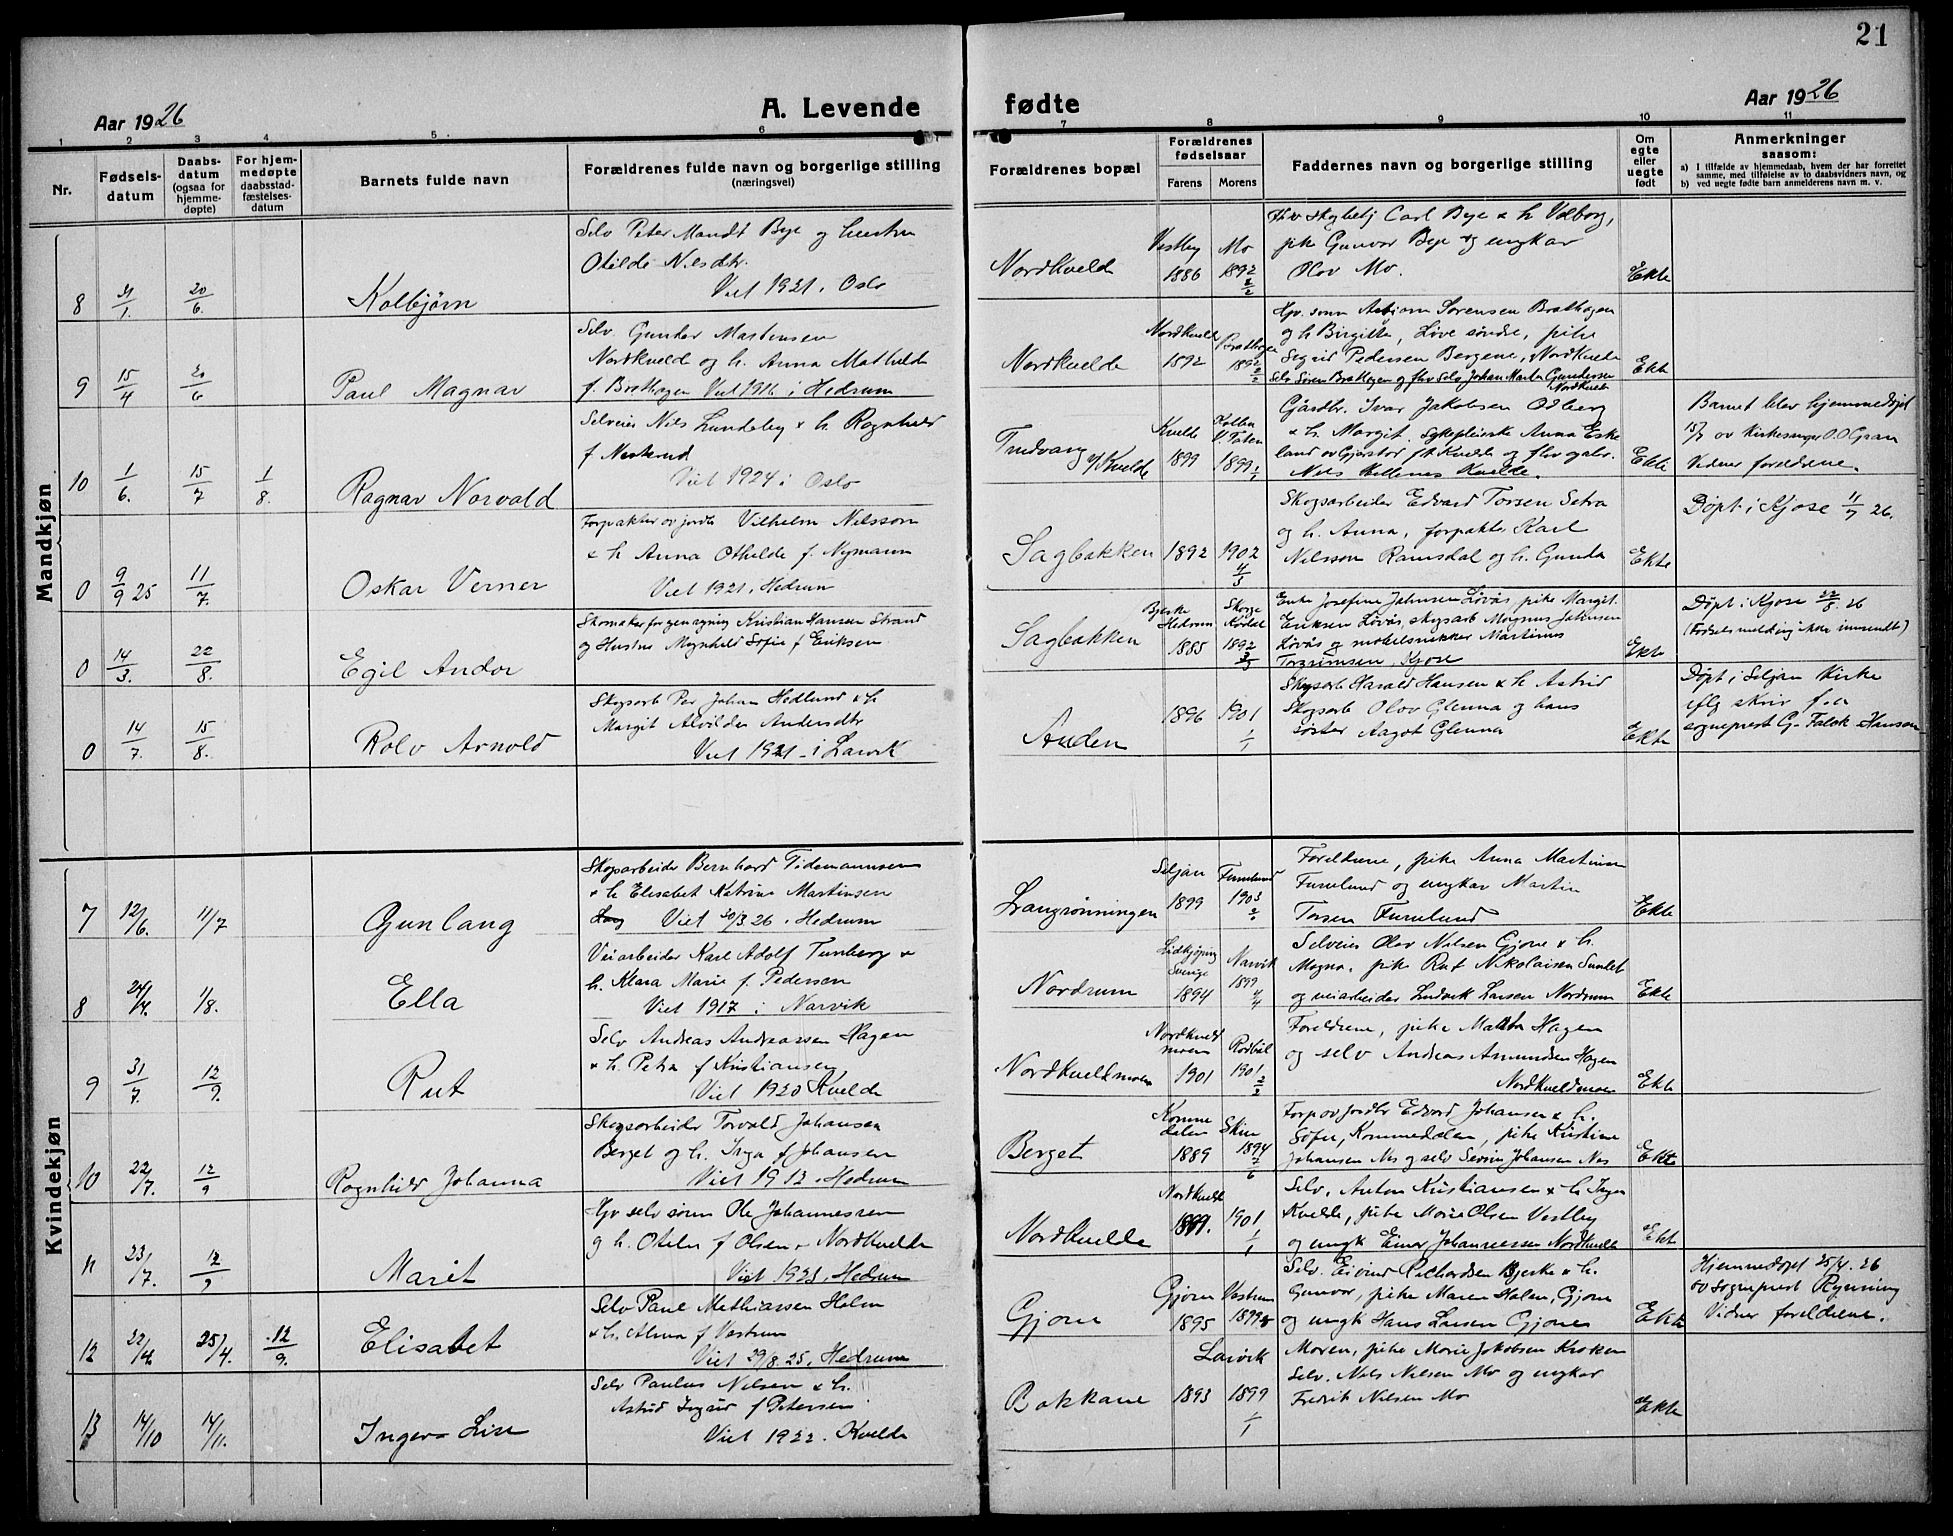 21
Aar 1926
A. Levende
fødte
Aar 1926
1 2 3 4 5 6 7 8 9 10 11
Nr.
Fødsels-
datum
Daabs-
datum
(ogsaa for
hjemme-
døpte)
For hjem-
medøpte
daabsstad-
fæstelses-
datum
Barnets fulde navn
Forældrenes fulde navn og borgerlige stilling
(næringsvei)
Forældrenes bopæl
Forældrenes
fødselsaar
Farens Morens
Faddernes navn og borgerlige stilling
Om
egte
eller
uegte
født
Anmerkninger
saasom:
a) I tilfælde av hjemmedaab, hvem der har forrettet
samme, med tilføielse av to daabsvidners navn, og
b) ved uegte fødte barn anmelderens navn m. v.
Mandkjøn
8 31/1. 20/6. Kolbjørn
Selv Peter Mandt Bye og hustru
Otilde Nilsdtr.
Viet 1921. Oslo
Nordkvelde
Vestby 1886
Mo 1892 2/2
Carl Bye & h Valborg,
pike Gunvor Bye og ungkar
Olov Mo.
Ekte
9 15/4 20/6 Paul Magnar
Selv. Gunder Martensen
Nordkvelde og h. Anna Mathilde
f. Brathagen Viet 1916 i Hedrum
Nordkvelde
Nordkvelde 1892
Brathagen 1892 2/2
Gv. sønn Asbjørn Sørensen Brathagen
og h Birgitte, Løve søndre, pike
Sigrid Pedersen Bergene, Nordkvelde
Selv Søren Brathagen og fhv selv. Johan Martin Gundersen
Nordkvelde
Ekte
10 1/6. 15/7 1/8. Ragnar Norvald
Selveier Nils Lundeby & h. Ragnhild
f Neskerud
Viet 1924 i Oslo
Trudvang v/ Kvelde
Kvelde 1899
Kolbu V. Toten 1899 1/1
Gårdbr. Ivar Jakobsen Odberg
& h. Margit. Sykepleierske Anna Eske
land
Nils Kvelde.
Ekte
Barnet blev hjemmedøpt
15/7 av Kirkesanger O. O Gran
Vidner foreldrene.
0 9/9 25 11/7. Oskar Verner
Forpakter av jordbr Vilhelm Nilsson
& h Anna Othilde f. Nymann
Viet 1921. Hedrum
Sagbakken
1892 1902 4/3
Skogsarbeider Edvard Torsen Setra
og h. Anna, forpakter Karl
Nilsson Ramsdal og h. Gunda
Ekte
Døpt i Kjose 11/7 26.
0 14/3. 22/8. Egil Andor
Skomaker for egen regning Kristian Hansen Strand
og Hustru Magnhild Sofie f Eriksen
Sagbakken
Bjerke Hedrum 1885
Skorge Kodal 1892
Enke Josefine Johnsen Løvås pike Margit
Eriksen Løvås, skogsarb Magnus Johnsen
Løvås og møbelsnekker Martinus
Torsrimsen Kjose
Ekte
Døpt i Kjose 22/8. 26
(Fødselsmelding ikke innsendt)
0 14/7. 15/8. Rolv Arnold
Skogsarb Per Johan Hedlund & h
Margit Alvilde Andersdtr
Viet 1921 i Larvik
Anden
1896 1901 1/1
Skogsarb Harald Hansen & h Astrid
Skogsarb Olav Glenna og hans
søster Aagot Glenna
Ekte
Døpt i Siljan Kirke
iflg skriv f.
sogneprest G. Falck-Hansen
Kvindekjøn
7 12/6. 11/7 Gunlaug
Skogsarbeider Bernhard Tidemannsen
& h Elisabet Katrine Martinsen
Viet 20/3.26. Hedrum
Langrønningen
Siljan 1899
Furulund 1903
Foreldrene, pike Anna Martinsen
Furulund og ungkar Martin
Torsen Furulund
Ekte
8 24/4. 1/8. Ella
Veiarbeider Karl Adolf Tunberg &
h. Klara Marie f. Pedersen
Viet 1917 i Narvik
Nordrum
Lidkjøping Sverige 1894
Narvik 1899 4/4
Selveier Olav Nilsen Gjone & h.
Magna, pike Rut Nikolaisen Sunlet
og veiarbeider Ludvik Larsen Nordrum
Ekte
9 31/7. 12/9. Rut
Selv Andreas Andreassen Hagen
& h. Petra f Kristiansen
Viet 1920 Kvelde
Nordkveldmoen
Nordkveldmoen 1901
Rødbøl 1901 2/2
Foreldrene, pike Martha Hagen
og selv Andreas Amundsen Hagen
Nordkveldmoen
Ekte
10 22/7. 12/9 Ragnhild Johanna
Skogsarbeider Torvald Johansen
Berget og h. Inga f Johansen
Viet 1912. Hedrum
Berget
Kommedalen 1889
Skien 1894 7/6
Forp av jordbr Edvard Johansen & h.
Sofie, Kommedalen, pike Kristine
Johansen Nes og selv Severin Johansen Nes
Ekte
11 23/7. 12/9 Marit
Gv selv sønn Ole Johannessen
g h. Otelie f Olsen, Nordkvelde
Viet 1921. Hedrum
Nordkvelde
Nordkvelde 1899. 1901 1/1
Selv. Anton Kristiansen & h Inga
Kvelde, pike Marie Olsen Vestby
og ungk Einar Johannessen Nordkvelde
Ekte
12 22/4. 25/4. 12/9. Elisabet
Selv Paul Mathiassen Holm
& h. Alma f Vestrum
Viet 29/8.25. Hedrum
Gjone
Gjone 1895
Vestrum 1899
Selv. Eivind Richardsen Bjerke & h.
Gunvor, pike Maren Holm, Gjone
og ungk Hans Larsen Gjone
Ekte
Hjemmedøpt 25/4. 26
av sogneprest Rynning
Vidner foreldrene.
13 14/10 14/11. Inger Lise
Selv Paulus Nilsen & h.
Astrid Ingrid f Petersen
Viet 1922. Kvelde
Bakkane
1893
Larvik 1899 1/1
Moren, pike Marie Jakobsen Kroken
Selv. Nils Nilsen Mo og ungkar
Fredrik Nilsen Mo
Ekte